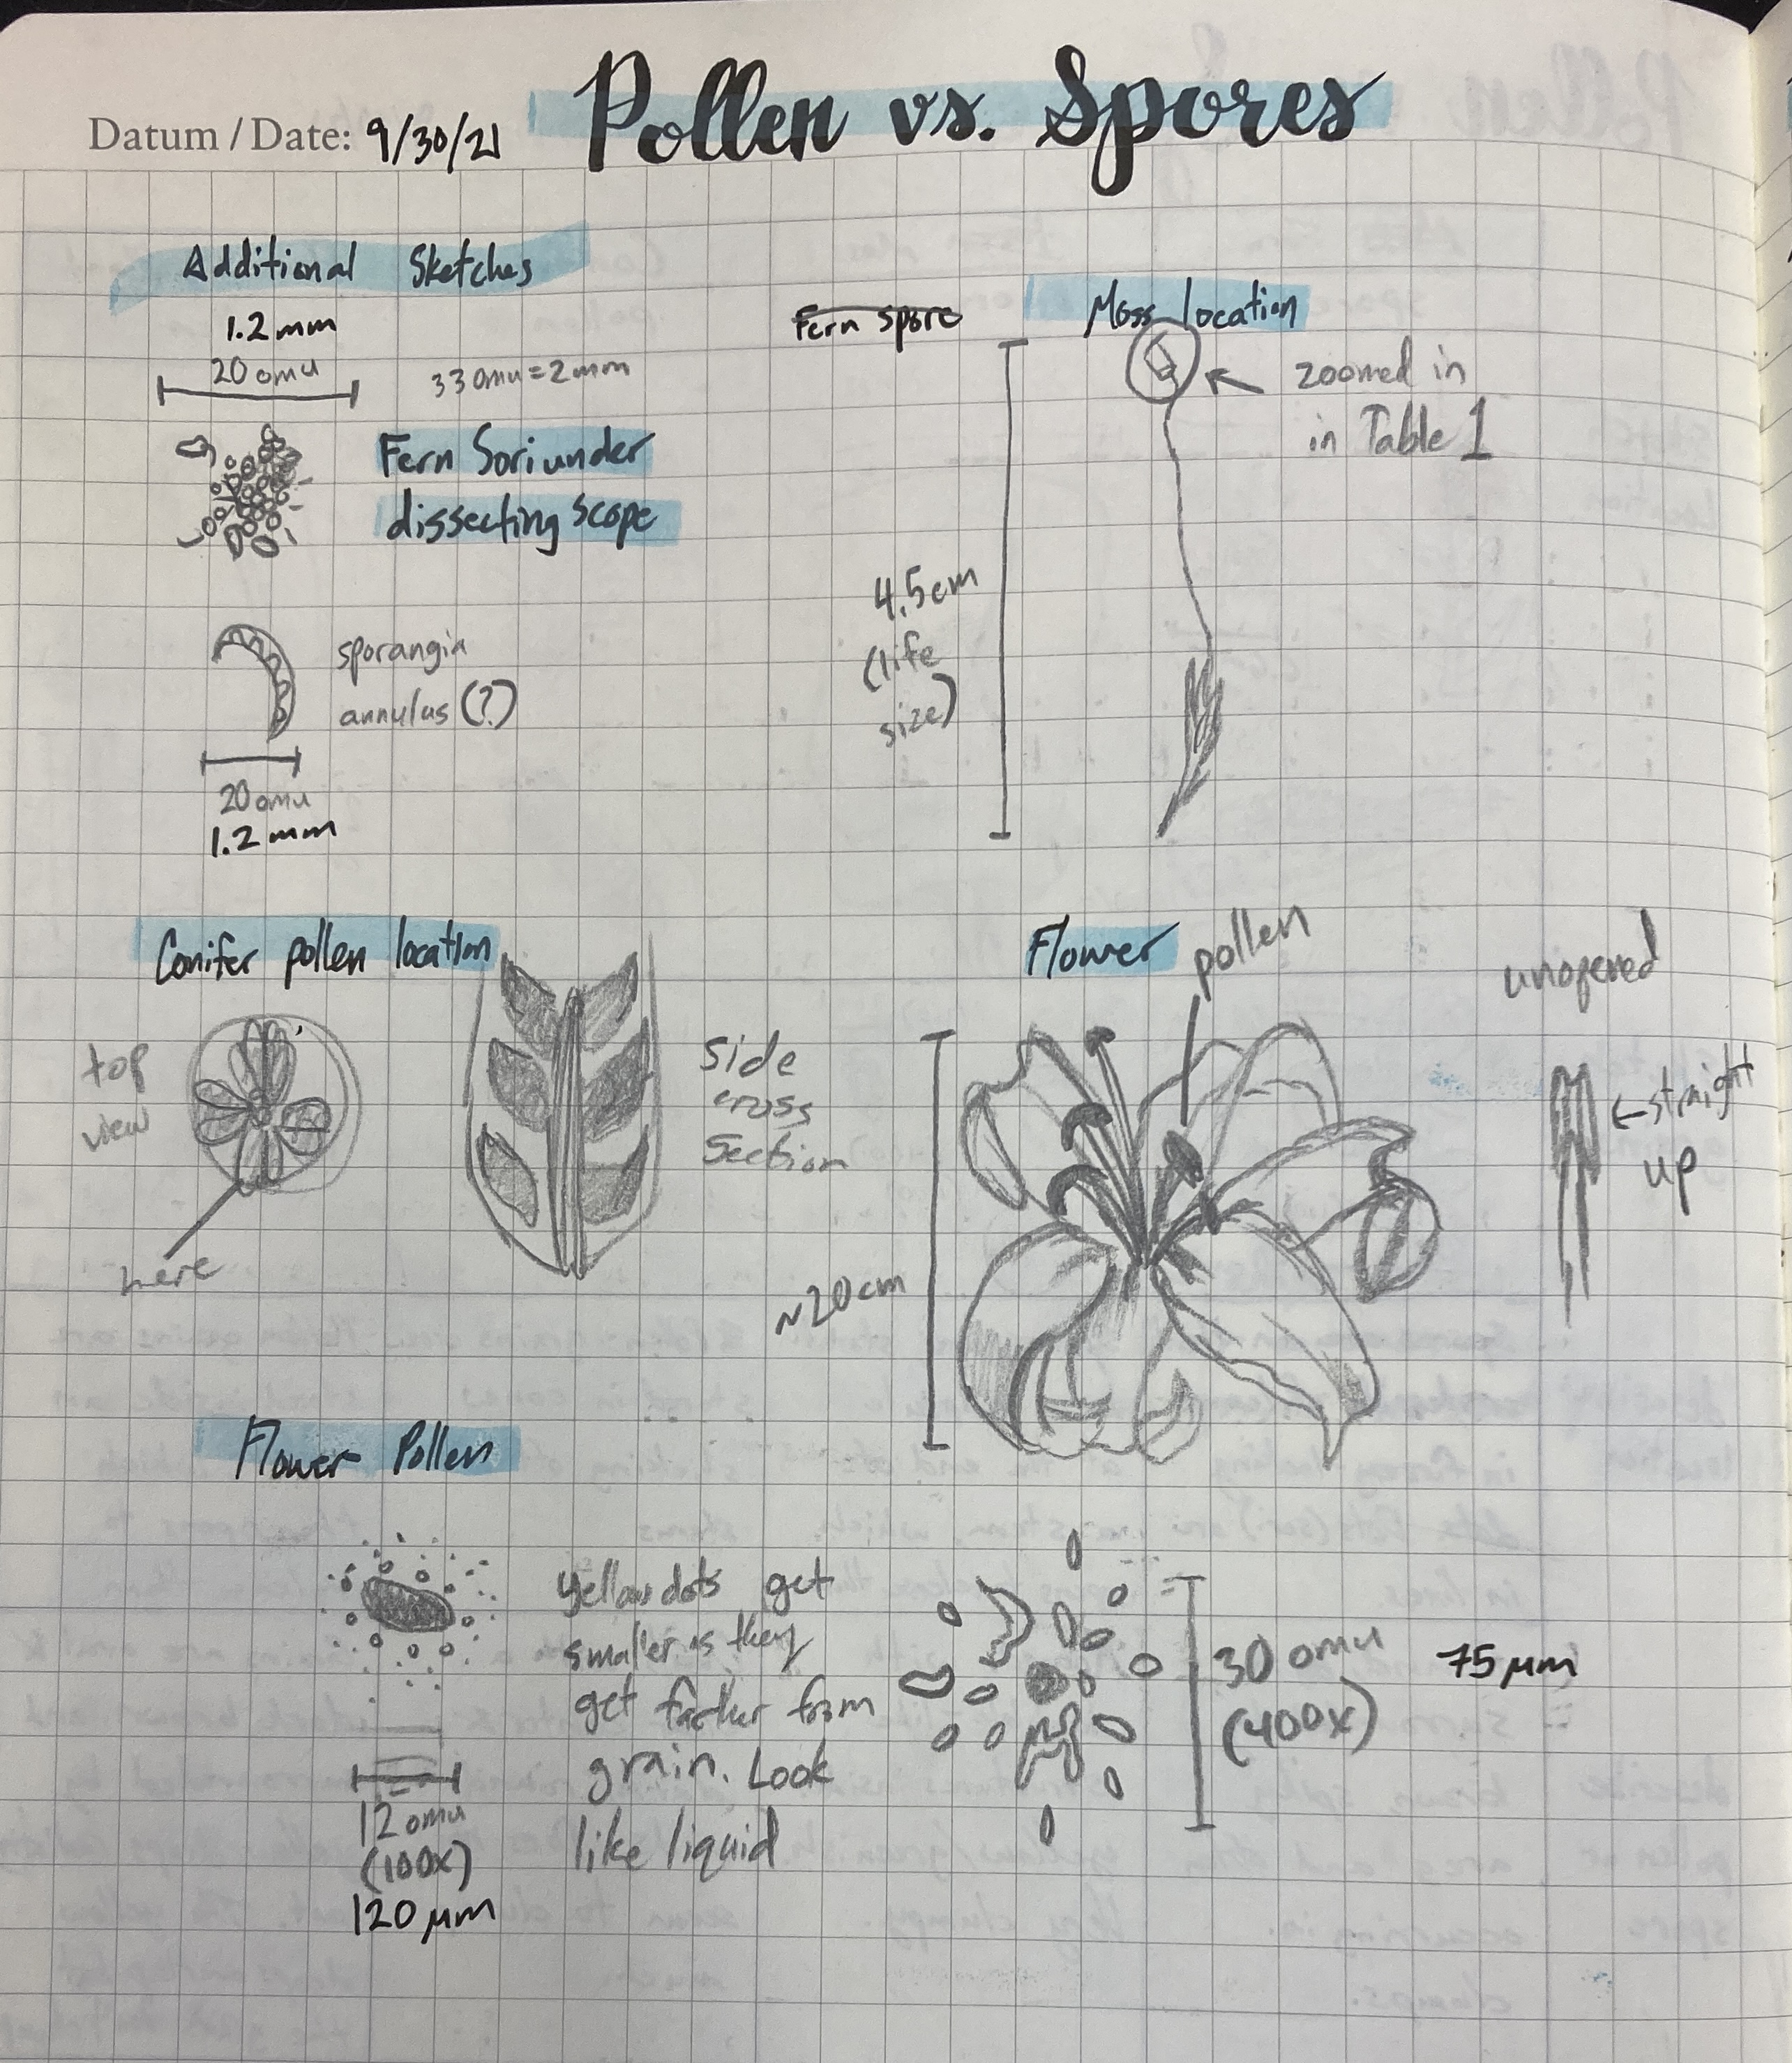 Pollen vs. Spores
Datum / Date: 9/30/21
Additional Sketches
1.2 mm
20 omu
33 omu = 2mm
Fern Sori under
dissecting scope
sporangia
annulus (?)
20 omu
1.2 mm
Fern spore
Moss location
zoomed in
in Table 1
4.5cm
(life
size)
Conifer pollen location
top
view
here
side
cross
section
Flower
pollen
unopened
←straight
up
~20cm
Flower Pollen
yellow dots get
smaller as they
get farther from
grain. Look
like liquid
12 omu
(100x)
120 μm
30 omu
(400x)
75 μm